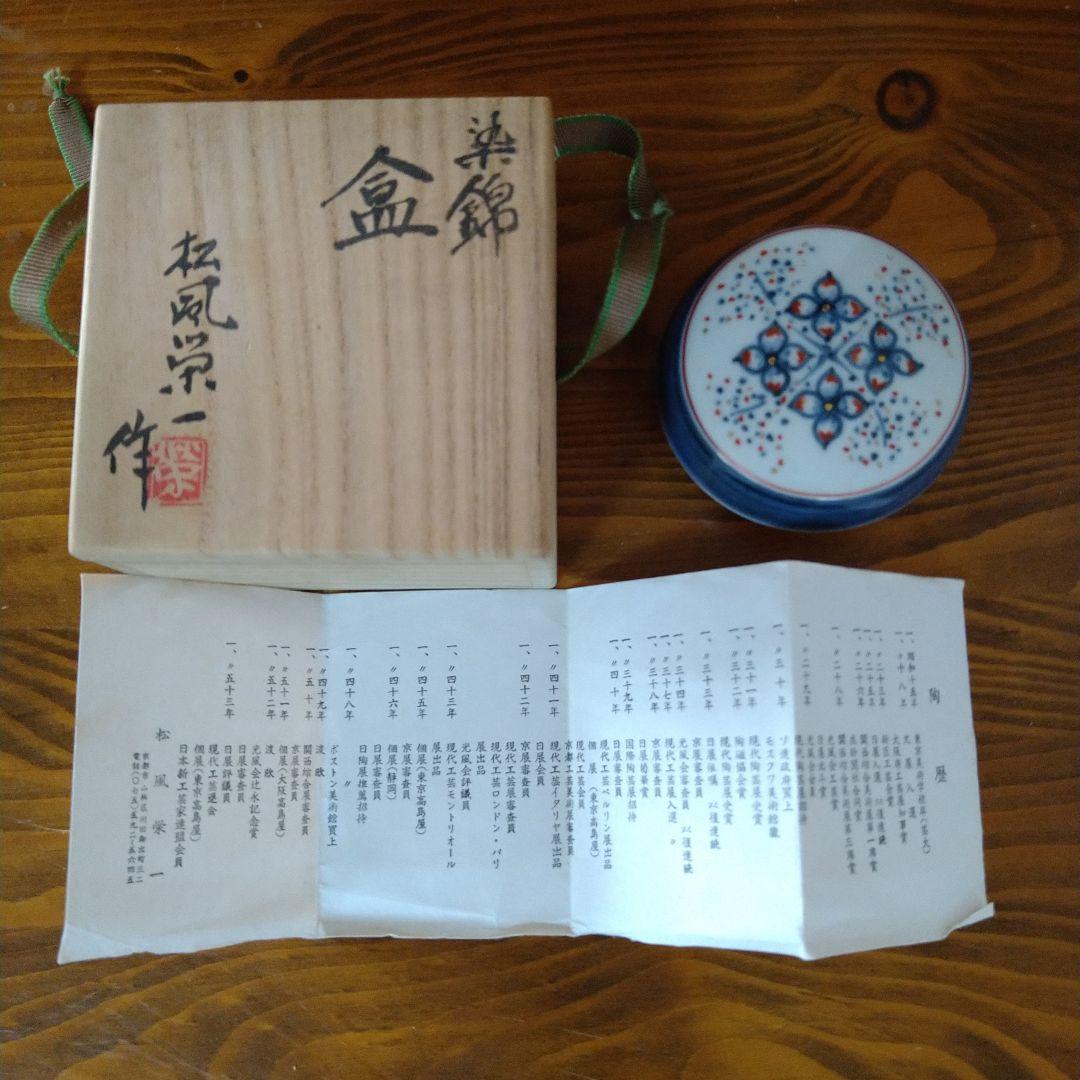 染錦
盒
松風栄一
作
栄
陶歴
一、昭和十五年
一、〃十八年
一、〃二十三年
一、〃二十五年
一、〃二十六年
一、〃二十八年
一、〃二十九年
一、〃三十年
ソ連政府買上
モスクワ美術館蔵
一、〃三十一年
現代陶芸展受賞
一、〃三十二年
陶磁協会賞
現代陶芸展受賞
一、〃三十三年
日展会嘱 以後連続
一、〃三十四年
光風会審査会員 以後連続
一、〃三十七年
現代工芸展入選 〃
一、〃三十八年
京展審査員
日展菊花賞
一、〃三十九年
国際陶芸展招待
一、〃四十年
日展審査員
現代工芸ベルリン展出品
個展(東京高島屋)
現代工芸会員
京都工芸美術展審査員
一、〃四十一年
現代工芸イタリヤ展出品
日展会員
一、〃四十二年
京展審査員
現代工芸展審査員
現代工芸ロンドン・パリ
展出品
光風会評議員
一、〃四十三年
現代工芸モントリオール
展出品
一、〃四十五年
個展(東京高島屋)
京展審査員
一、〃四十六年
個展(静岡)
日展審査員
一、〃四十八年
日陶展推薦招待
〃
ボストン美術館買上
一、〃四十九年
渡欧
一、〃五十年
関西綜合展審査員
京展審査員
一、〃五十一年
個展(大阪高島屋)
一、〃五十二年
渡欧
光風会辻永記念賞
日展審査員
一、〃五十三年
日展評議員
現代工芸退会
個展(東京高島屋)
日本新工芸家連盟会員
松風栄一
京都市山科区川田御出町三二
電話(〇七五)五九二-五六四五